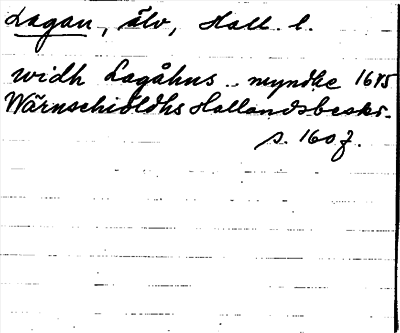 Lagan, älv, Hall. l.
widh Lagåhus .. myndhe 1645
Wärnschiöldhs Hallandsbeskr.
s. 160 f.